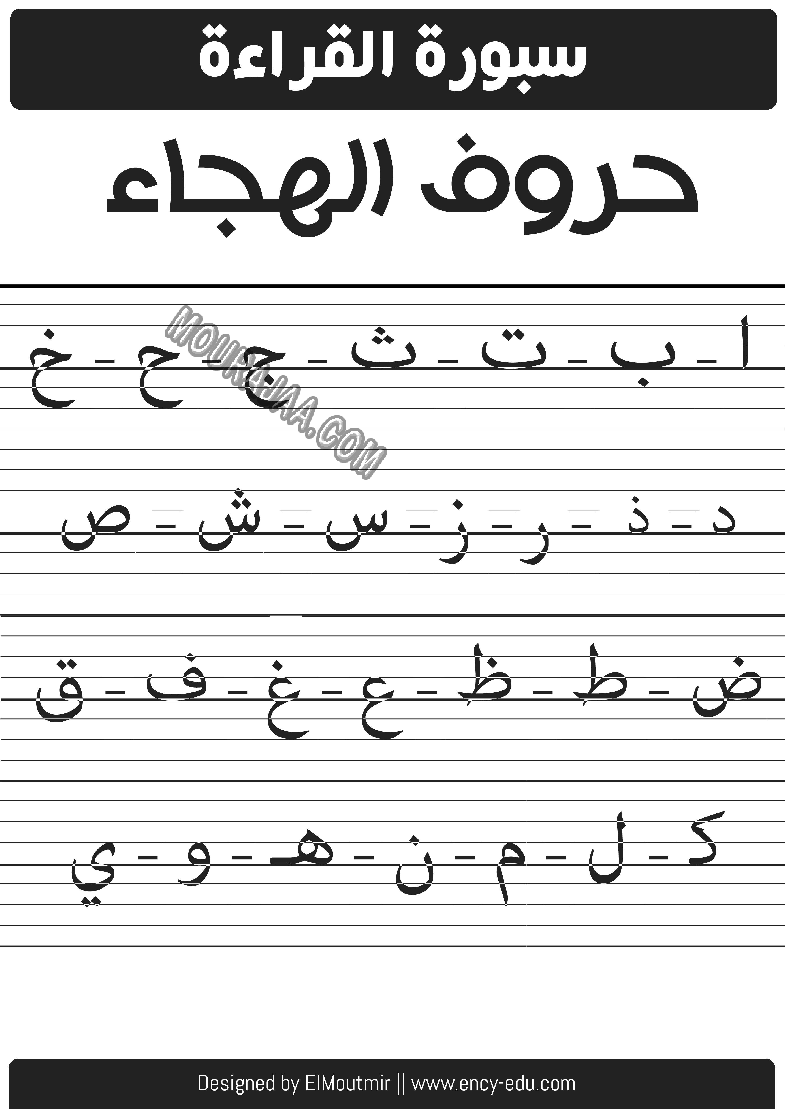 سبورة القراءة
حروف الهجاء
ا – ب – ت – ث – ج – ح – خ
د – ذ – ر – ز – س – ش – ص
ض – ط – ظ – ع – غ – ف – ق
ك – ل – م – ن – هـ – و – ي
MOURAJAA.COM
Designed by ElMoutmir || www.ency-edu.com